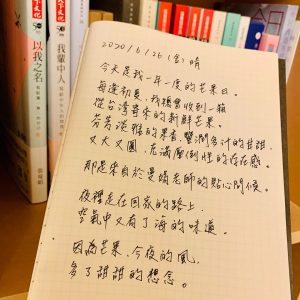 天下文化
以我之名
張曼娟
我輩中人
張曼娟
2020/6/26(金)晴
今天是我一年一度的芒果日。
每逢初夏,我總會收到一箱
從台灣寄來的新鮮芒果。
芬芳淡雅的果香,豐潤多汁的甘甜,
又大又圓,充滿壓倒性的存在感。
那是來自於曼娟老師的貼心問候。
夜裡走在回家的路上
空氣中又有了海的味道。
因為芒果,今夜的風,
多了甜甜的想念。